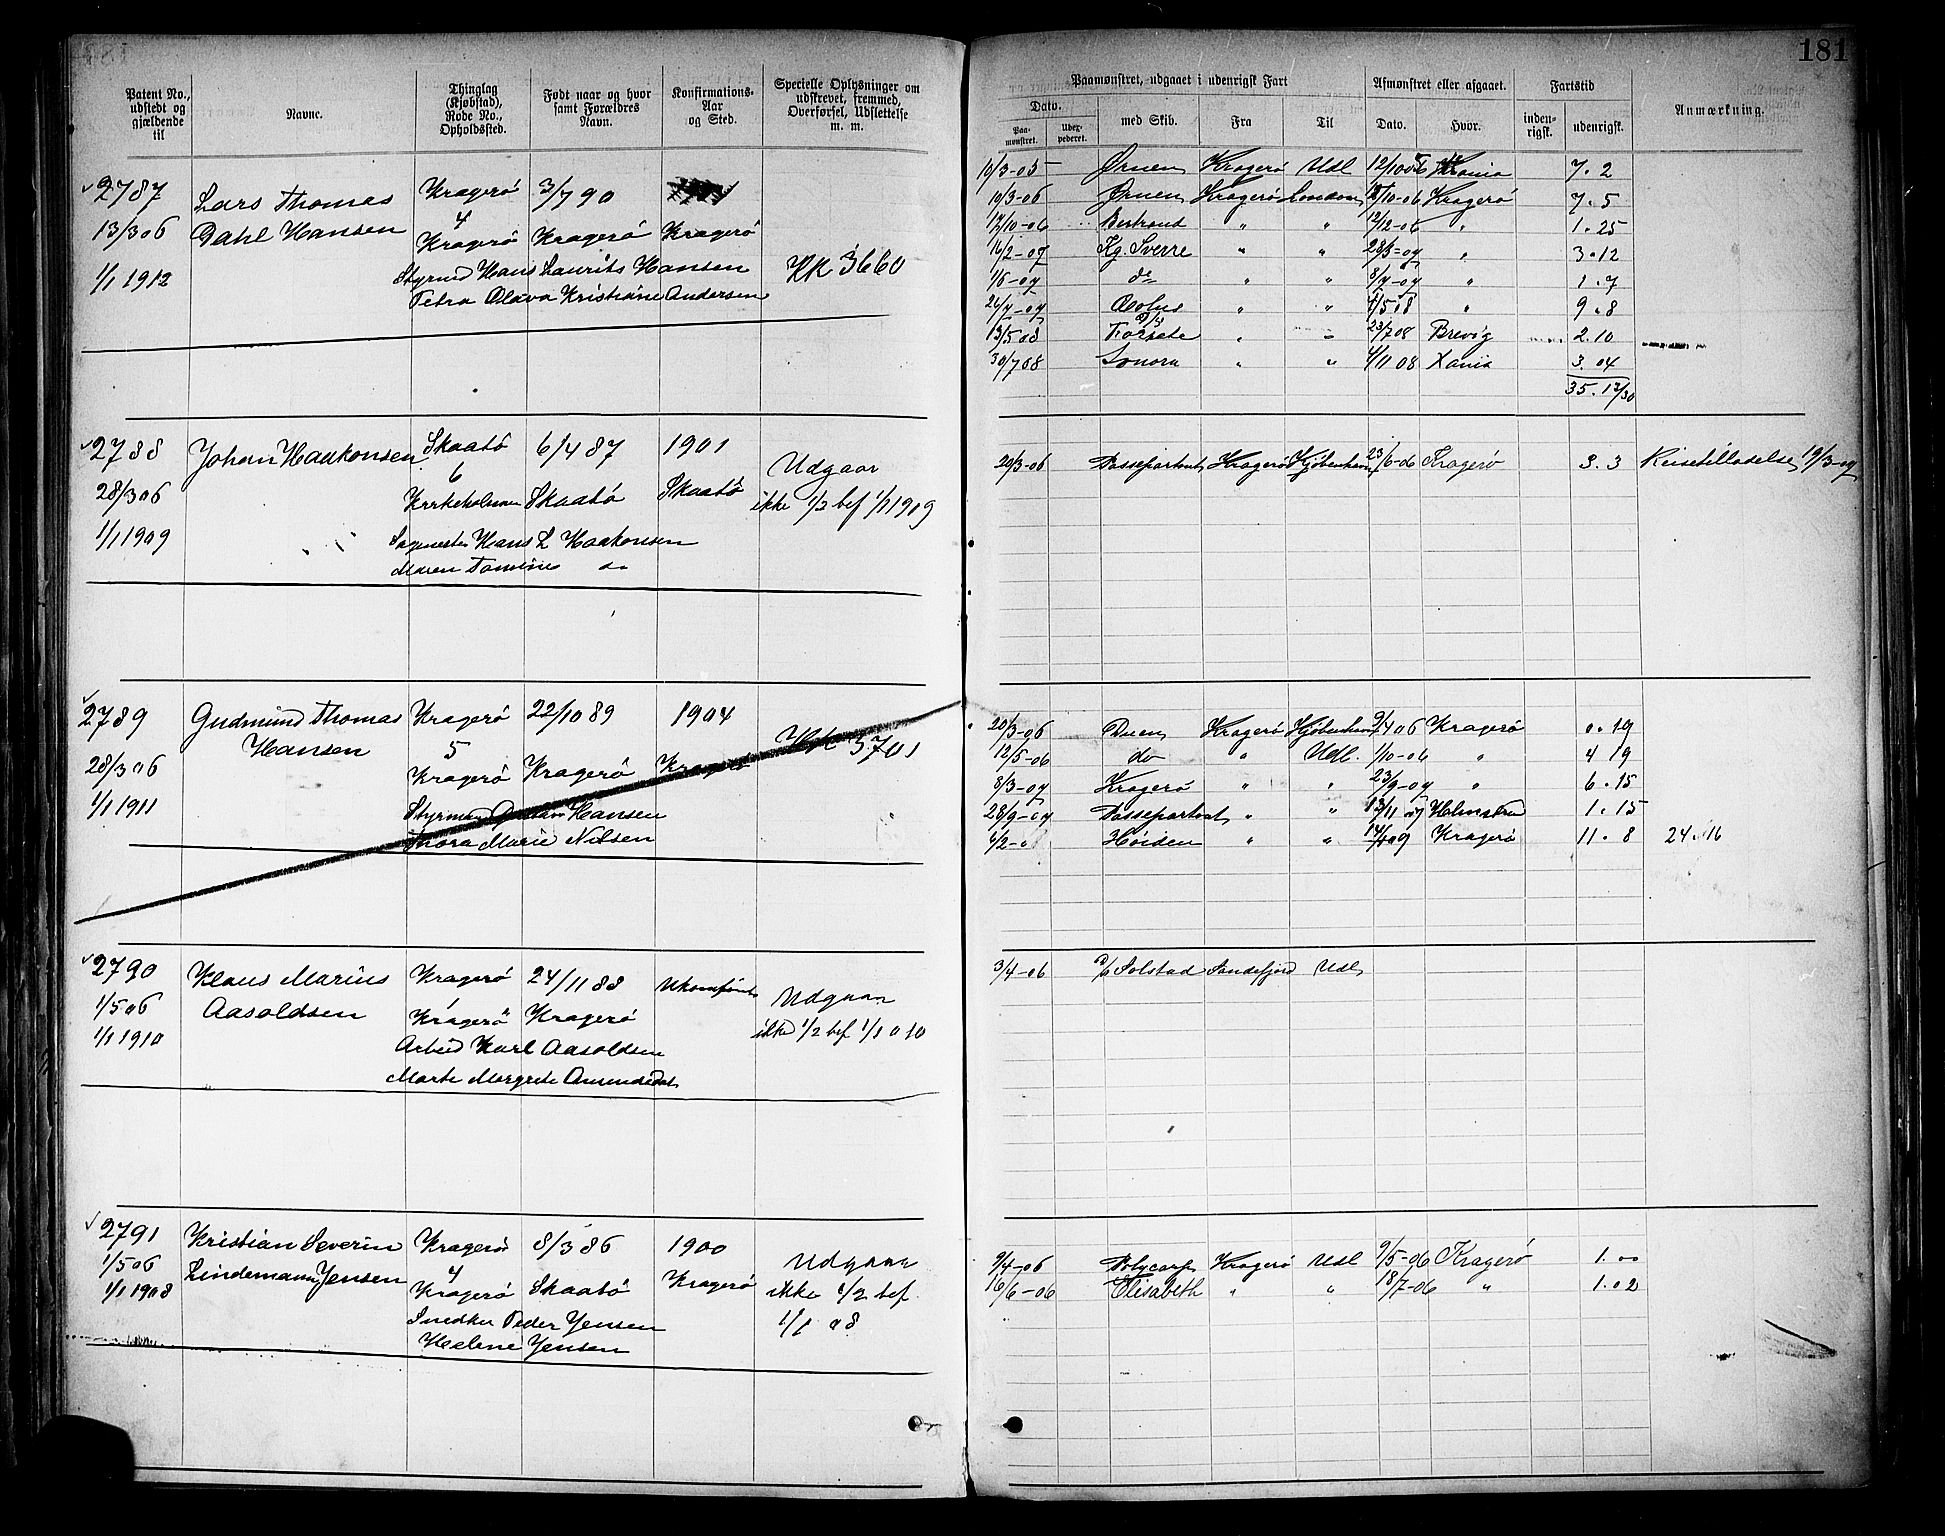 181
Patent No., udstedt og gjældende til
Navne.
Thinglag (Kjøbstad), Rode No., Opholdssted.
Født naar og hvor samt Forældres Navn.
Konfirmations- Aar og Sted.
Specielle Oplysninger om udskrevet, fremmed, Overførsel, Udslettelse m. m.
Paamønstret, udgaaet i udenrigsk Fart
Afmønstret eller afgaaet.
Fartstid
Anmærkning.
Dato.
Paa- mønstret.
Uder- pederet.
med Skib.
Fra
Til
Dato.
Hvor.
inden- rigsk.
udenrigsk.
2787 Lars Thomas Kragerö 3/7 90
13/3 06 Dahl Hansen 4 Kragerö Kragerö Kragerö
1/1 1912 Styrmd Hans Laurits Hansen KK 3660
Petra Olava Kristiane Andersen
10/3-05 Ørnen Kragerö Udl 12/10 05 Krania 7. 2
10/3-06 Ørnen Kragerö London 12/10-06 Kragerö 7. 5
17/10-06 Bertrand " " 12/12-06 " 1. 25
16/2-07 Kg. Sverre " " 28/5-07 " 3. 12
1/6-07 do " " 8/7-07 " 1. 7
26/7-07 Æolus " " 4/5 08 " 9. 8
13/5 08 D/S Forsete " " 23/7 08 Brevig 2. 10
30/7 08 Sonora " " 4/11 08 Xania 3. 04
35. 12/30
2788 Johan Haakonsen Skaatö 6/4 87 1901 Udgaar
28/3 06 6 Kirkeholmen Skaatö Skaatö ikke 1/2 bef 1/1 1909
1/1 1909 Hans L Haakonsen
Maren do
20/3-06 Passepartout Kragerö Kjöbenhavn 23/6-06 Kragerö 3. 3 Reisetilladelse 19/3-07
2789 Gudmund Thomas Kragerö 22/10 89 1904 KK 3701
28/3 06 Hansen 5 Kragerö Kragerö Kragerö
1/1 1911 Styrmand Hansen
Thora Marie Nilsen
20/3-06 Duen Kragerö Kjöbenhavn 9/4 06 Kragerö 0. 19
12/5-06 do " Udl. 1/10-06 " 4 19
8/3-07 Kragerö " " 23/9-07 " 6. 15
28/9-07 Passepartout " " 13/11 07 1. 15
6/2- Høiden " " 14/1 09 Kragerö 11. 8 24. 16
2790 Klaus Marius Kragerö 24/11 88 Ukonfirm Udgaar
1/5 06 Aasoldsen Kragerö Kragerö ikke 1/2 bef 1/1 010
1/1 1910 Arbeid Karl Aasoldsen
Marte Margrete
3/4-06 Solstad Sandefjord Udl
2791 Kristian Severin Kragerö 8/3 86 1900 Udgaar
1/5 06 Lindemann Jensen 4 Kragerö Skaatö Kragerö ikke 1/2 bef
1/1 1908 Snedker Peder Jensen 1/1 08
Helene Jensen
9/4-06 Polycarp Kragerö Udl 9/5-06 Kragerö 1. 00
16/6-06 Elisabeth " " 18/7-06 " 1. 02